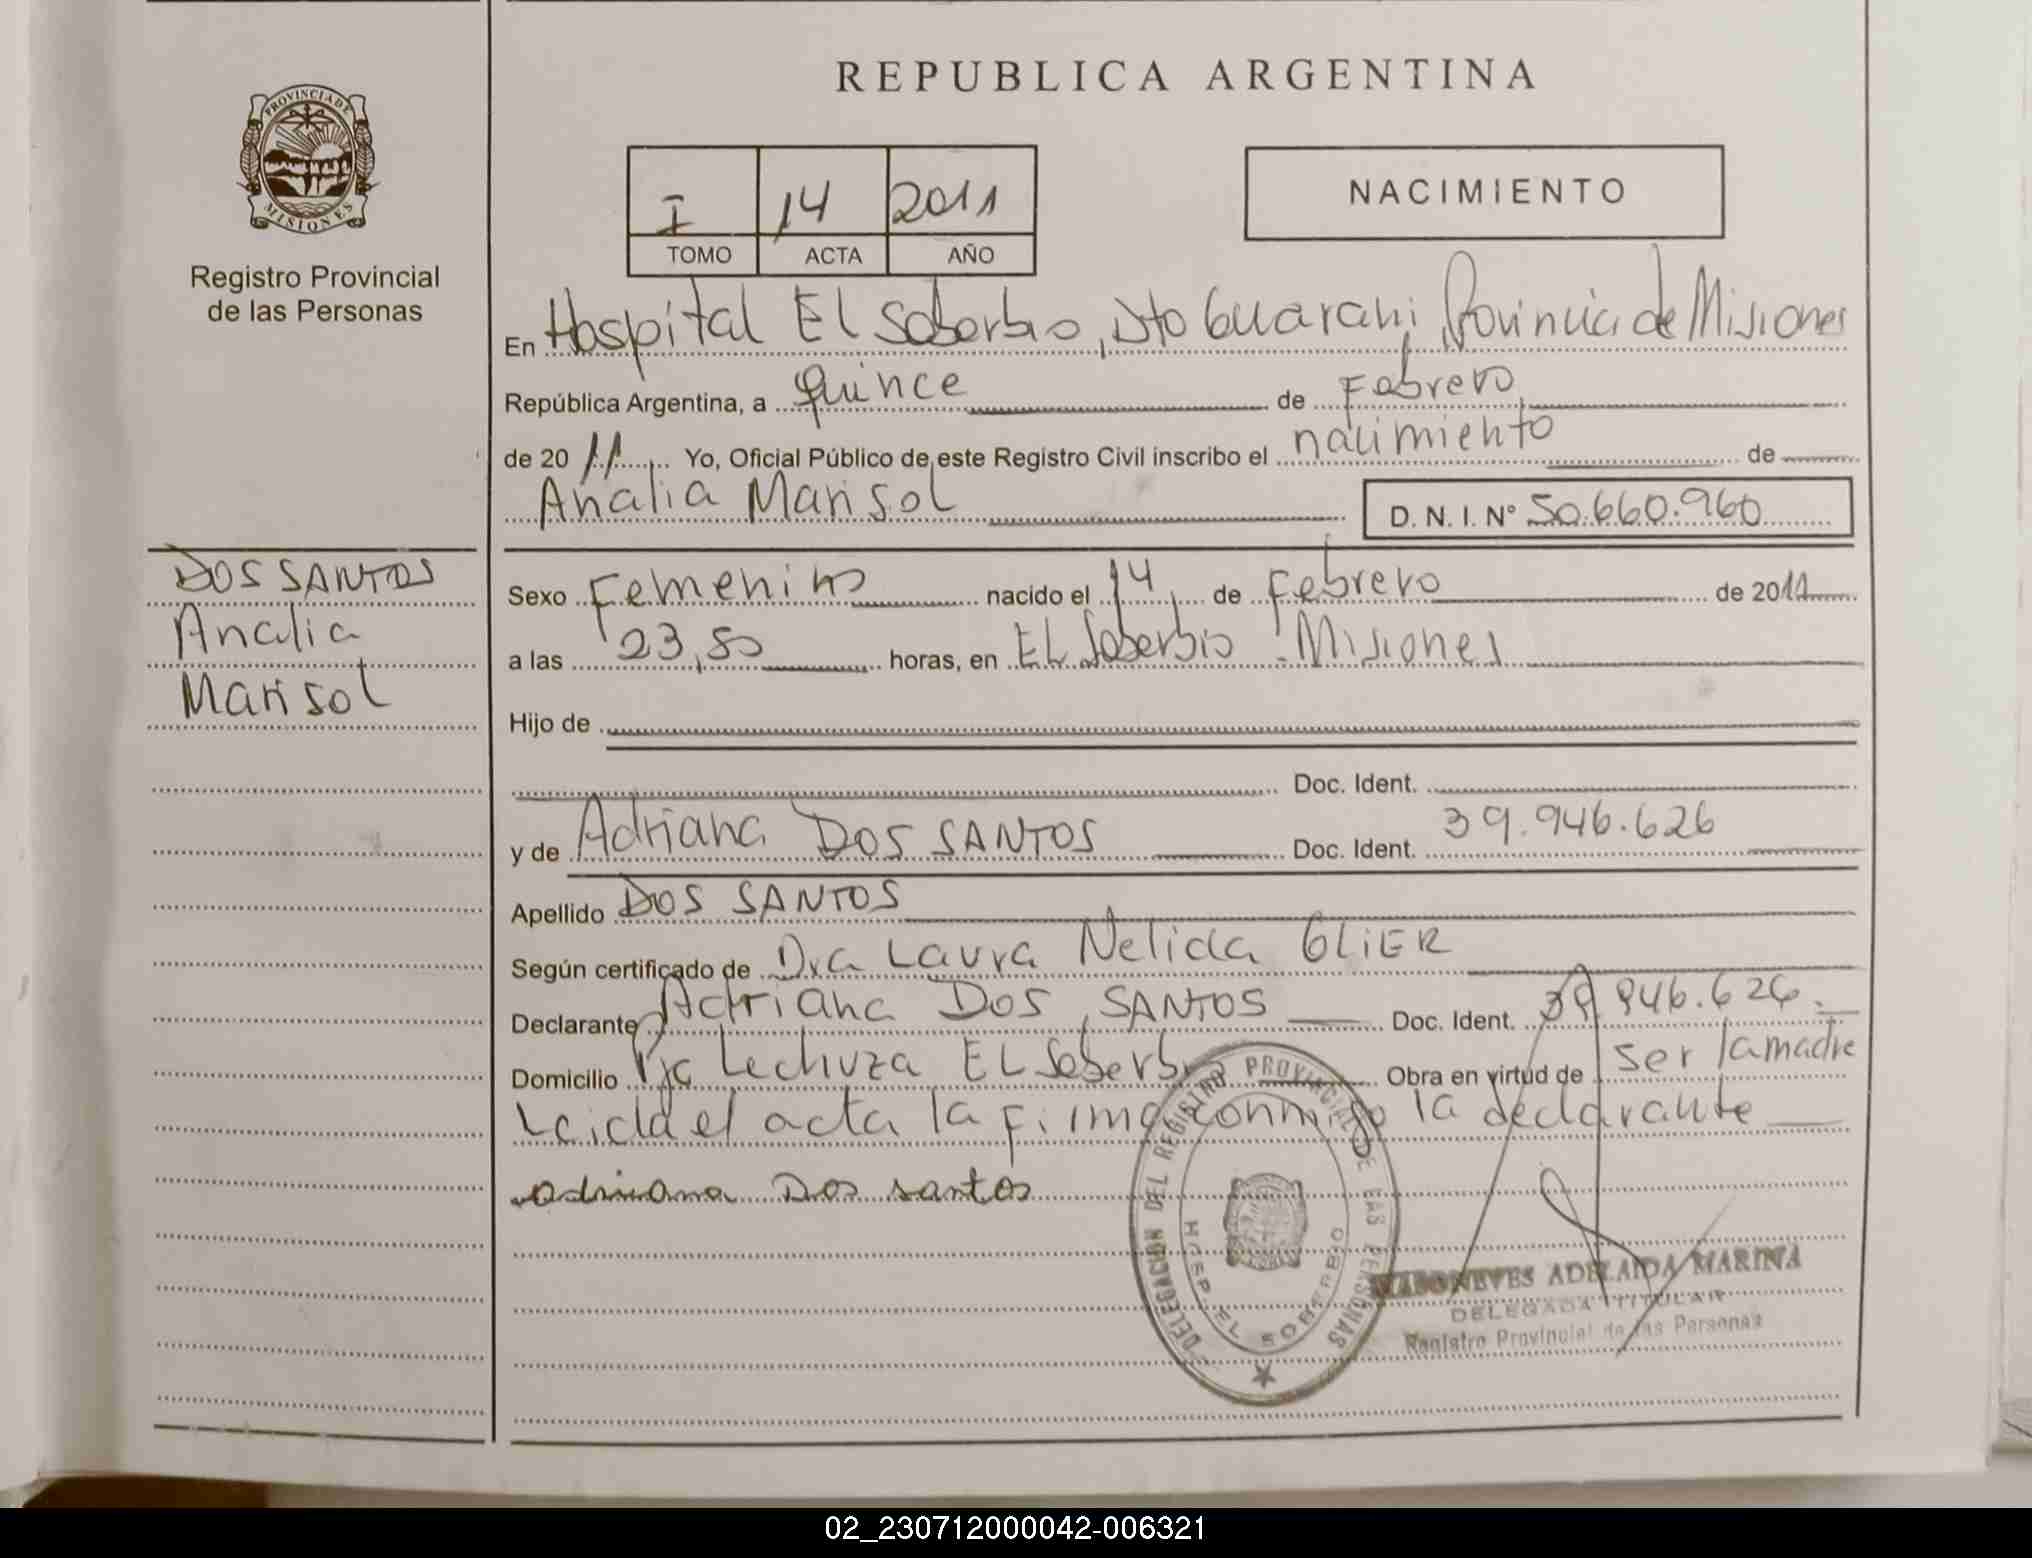 REPUBLICA ARGENTINA
PROVINCIA DE MISIONES
Registro Provincial
de las Personas
I 14 2011
TOMO ACTA AÑO
NACIMIENTO
En Hospital El Soberbio, Dto Guarani, Provincia de Misiones
República Argentina, a quince de Febrero
de 2011 Yo, Oficial Público de este Registro Civil inscribo el nacimiento de
Analia Marisol D. N. I. Nº 50.660.960
DOS SANTOS
Analia
Marisol
Sexo Femenino nacido el 14 de Febrero de 2011
a las 23,50 horas, en El Soberbio - Misiones
Hijo de
Doc. Ident.
y de Adriana DOS SANTOS Doc. Ident. 39.946.626
Apellido DOS SANTOS
Según certificado de Dra Laura Nelida GLIER
Declarante Adriana DOS SANTOS Doc. Ident. 39.946.626.
Domicilio Pje Lechuza El Soberbio Obra en virtud de ser la madre
Leida el acta la firma conmigo la declarante
adriana Dos santos
DELEGACION DEL REGISTRO PROVINCIAL DE LAS PERSONAS
HOSP. EL SOBERBIO
ADELAIDA MARINA
DELEGADA TITULAR
Registro Provincial de las Personas
02_230712000042-006321